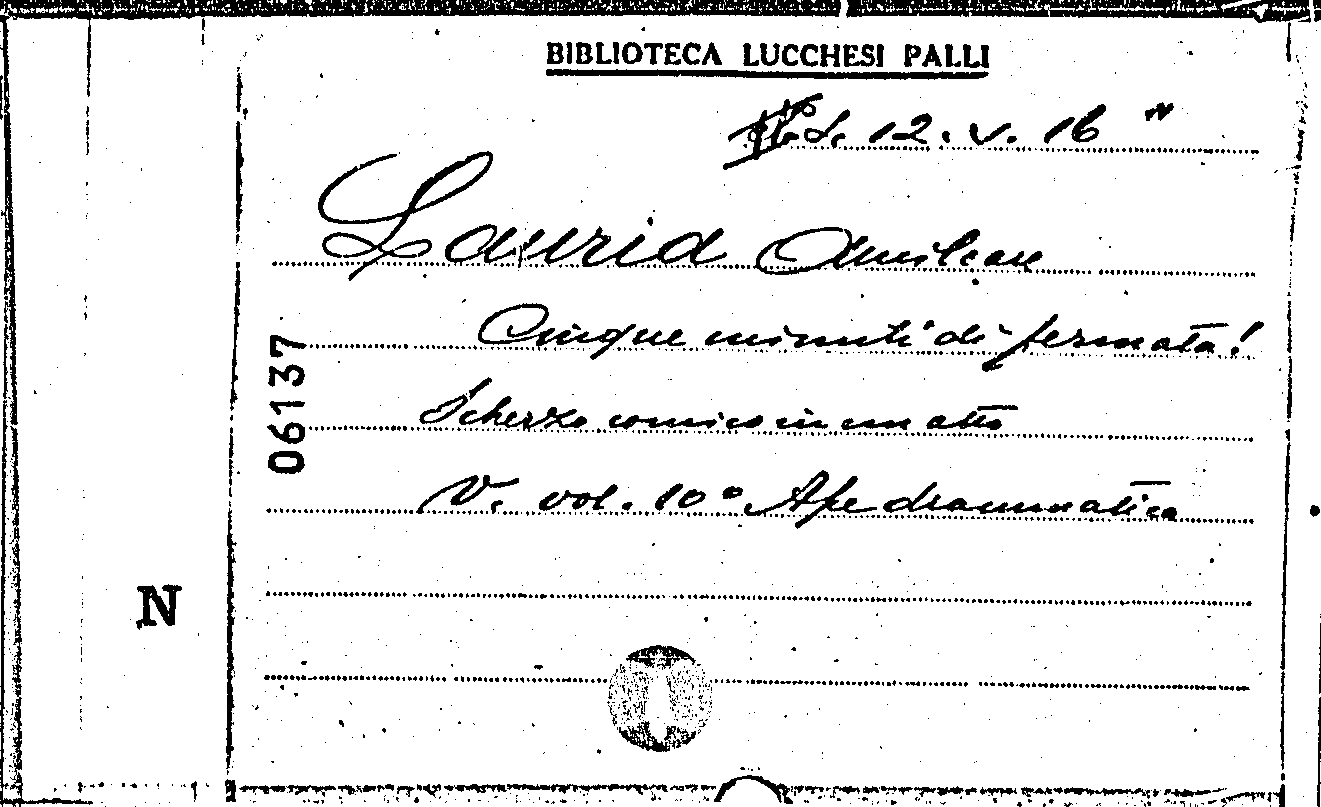 BIBLIOTECA LUCCHESI PALLI
S. 12. V. 16 "
Lauria Amilcare
Cinque minuti di fermata!
06137
Scherzo comico in un atto
V. vol. 10° Ape drammatica
N